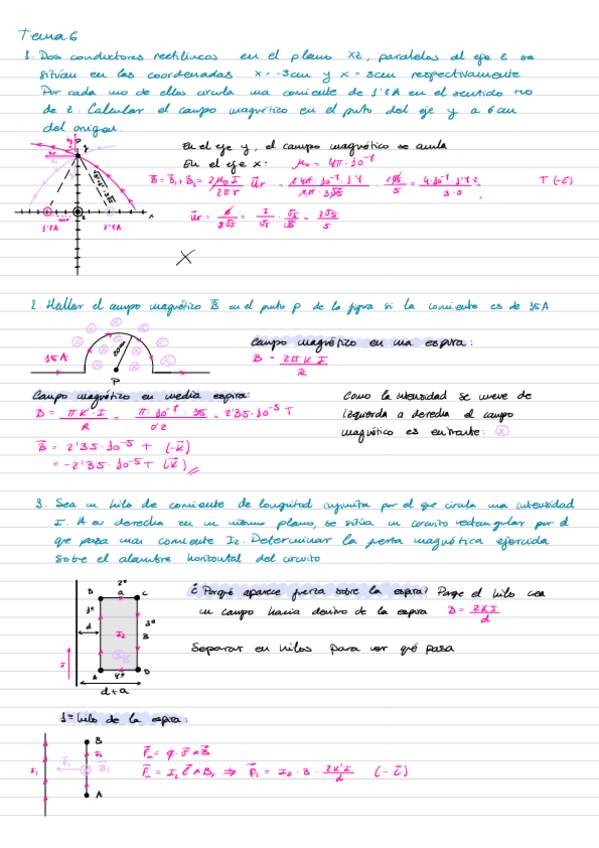 Tema 6
1. Dos conductores rectilíneos en el plano XZ, paralelos al eje z se
sitúan en las coordenadas x = -3cm y x = 3cm respectivamente
Por cada uno de ellos circula una corriente de 1'1A en el sentido +vo
de z. Calcular el campo magnético en el pnto del eje y a 6cm
del origen.
En el eje y, el campo magnético se anula
En el eje x: μ₀ = 4π·10⁻⁷
T (-i)
1'1A 1'1A
2. Hallar el campo magnético B en el punto P de la figura si la corriente es de 15A
Campo magnético en una espira:
15A
20cm
P
B = 2πKI / R
Campo magnético en media espira:
B = πK·I / R = π·10⁻⁷·15 / 0'2 = 2'35·10⁻⁵ T
Como la intensidad se mueve de
izquierda a derecha el campo
magnético es entrante: ⊗
B = 2'35·10⁻⁵ T (-k)
= -2'35·10⁻⁵ T (k)
3. Sea un hilo de corriente de longitud infinita por el que circula una intensidad
I. A su derecha en un mismo plano, se sitúa un circuito rectangular por el
que pasa una corriente I₂. Determinar la fuerza magnética ejercida
sobre el alambre horizontal del circuito
¿Porqué aparece fuerza sobre la espira? Porque el hilo crea
un campo hacia dentro de la espira B = 2KI / d
Separar en hilos para ver qué pasa
2º
B a C
1º
3º
d
I₂
B
I
A 4º D
d+a
1º hilo de la espira:
B
I₂
I₁
F₁
B₁
A
Fm = q·v∧B
Fm = I₂ l∧B₁ ⇒ F₁ = I₂·B·2K'I / d (-i)